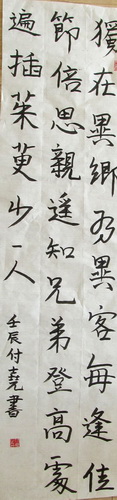 獨在異鄉為異客每逢佳
節倍思親遥知兄弟登高處
遍插茱萸少一人
壬辰付志堯書